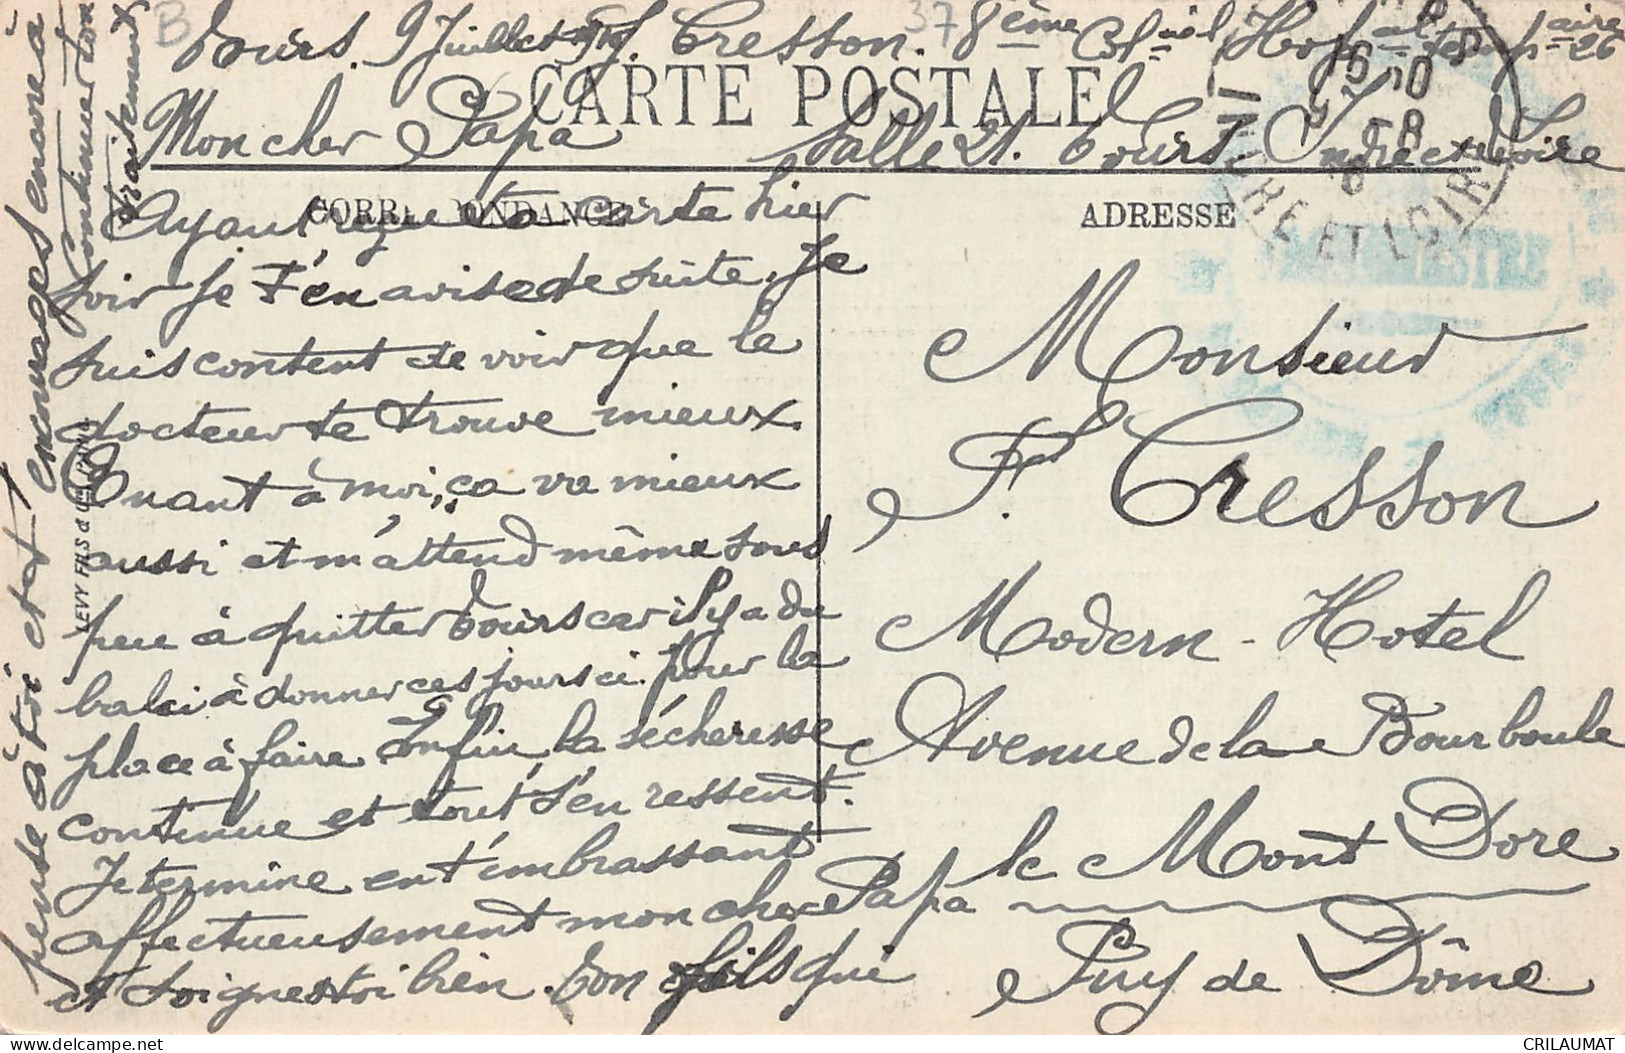 Tours. 9 Juillet J. Cresson. 8ème Col.nial Hopal tempaire 26
CARTE POSTALE
Mon cher Papa Salle 21. Tours. Indre et Loire
CORRESPONDANCE
ADRESSE
INDRE ET LOIRE
Ayant reçu ta carte hier
soir je t'en avise de suite. Je
suis content de voir que le
docteur te trouve mieux.
Quant à moi, ça va mieux
aussi et m'attend même sous
peu à quitter Tours car il y a du
balai à donner ces jours ci pour la
place à faire. Enfin la sécheresse
continue et tout s'en ressent.
Je termine en t'embrassant
affectueusement mon cher Papa
et soignes toi bien. Ton fils qui
pense à toi et t'encourages encore à
continuer ton
traitement
LEVY FILS & Cie
Monsieur
F. Cresson
Modern-Hotel
Avenue de la Bourboule
le Mont Dore
Puy de Dôme
delcampe.net
CRILAUMAT